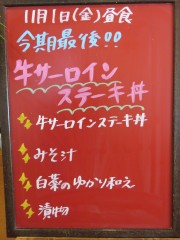 11月1日(金)昼食
今期最後!!
牛サーロイン
ステーキ丼
牛サーロインステーキ丼
みそ汁
白菜のゆかり和え
漬物